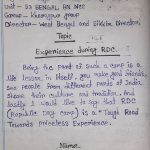 Unit - 53 BENGAL BN NCC
Group - Kharagpur group
Directorate - West Bengal and Sikkim Directorate
Topic
Experience during RDC.
Being the part of such a camp is a
life lesson in itself, you make good friends,
see people from different parts of India,
share their culture and tradition. And
lastly I would like to say that RDC
(Republic Day Camp) is a "Tough Road
Towards priceless Experience.
Name